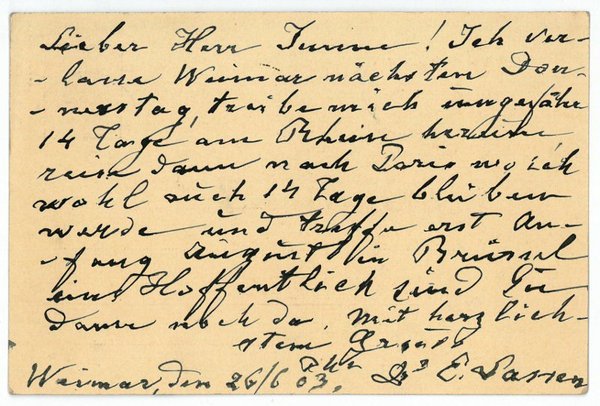 Lieber Herr Tunne! Ich ver-
-lasse Weimar nächsten Don-
-nerstag, treibe mich ungefähr
14 Tage am Rhein herum
reise dann nach Paris wo ich
wohl auch 14 Tage bleiben
werde und treffe erst An-
-fang August in Brüssel
ein. Hoffentlich sind Sie
dann noch da. Mit herzlich-
stem Gruss
Weimar, den 26/6 03. E. Lassen